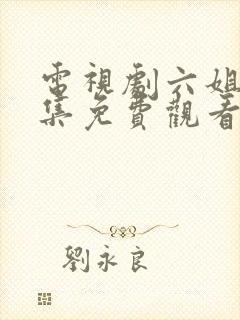 電視劇六姐
集免費觀看
劉永良